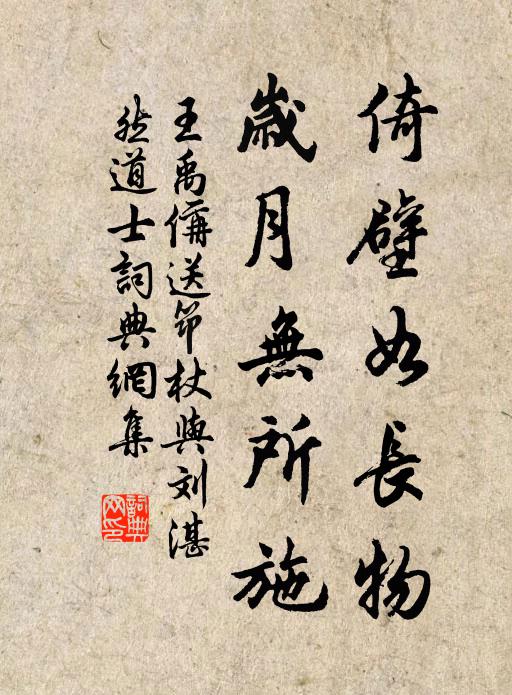 倚壁如長物
歲月無所施
王禹偁送笻杖與刘湛
然道士詞典網集
詞典
网印